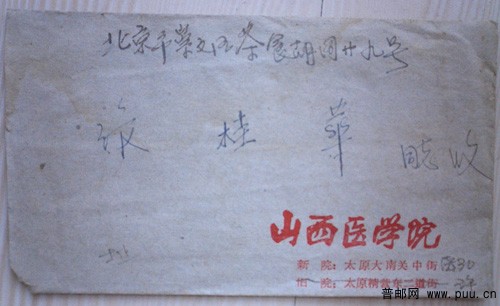 北京市崇文区茶食胡同廿九号
张 桂 华 同志收
山西医学院
新 院：太原大南关中街
旧 院：太原精营东二道街
普邮网 www.puu.cn